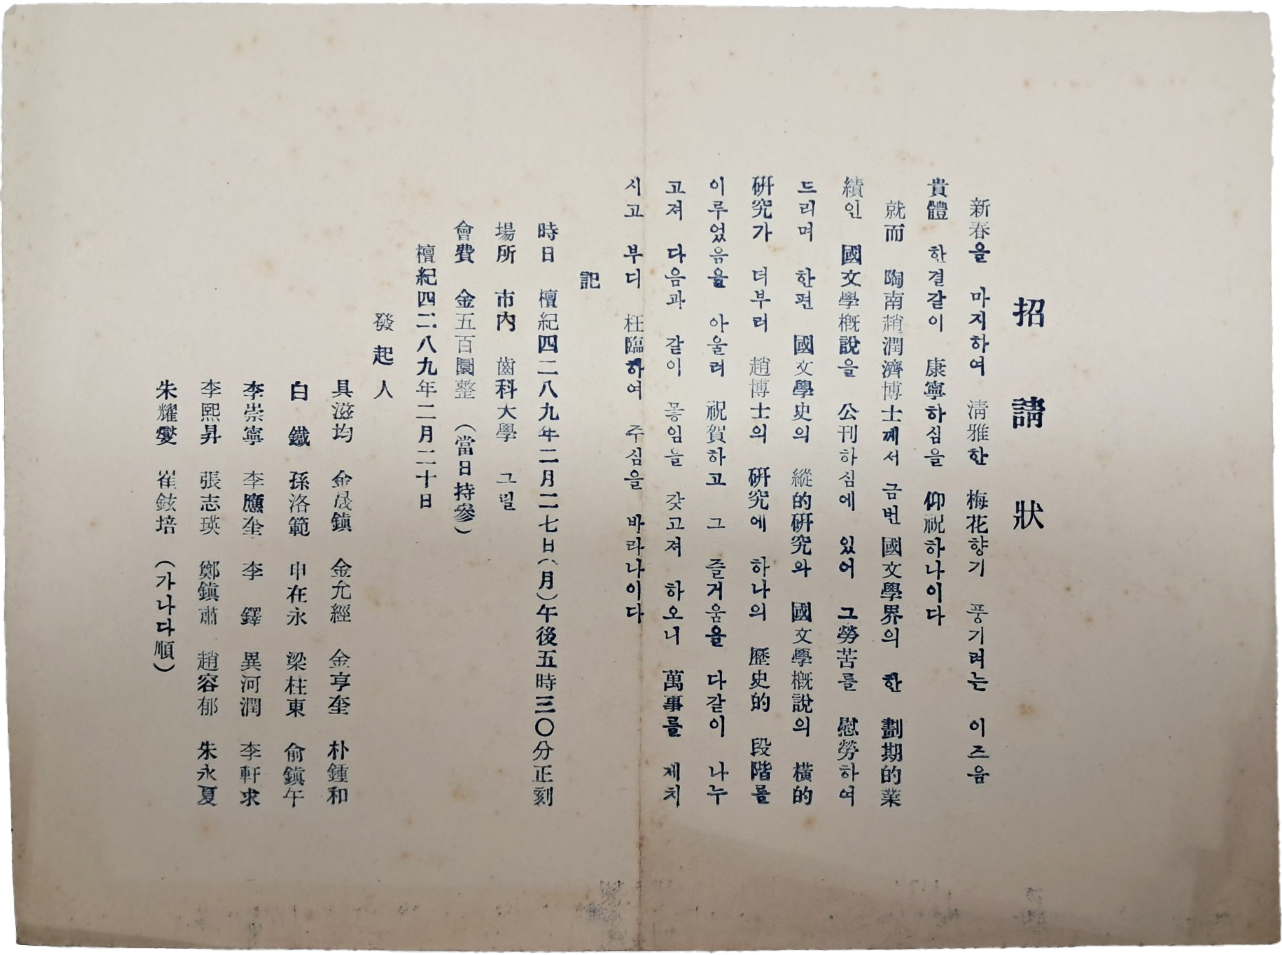 招請狀
新春을 마지하여 淸雅한 梅花향기 풍기려는 이즈음
貴體 한결같이 康寧하심을 仰祝하나이다
就而 陶南趙潤濟博士께서 금번 國文學界의 한 劃期的業
績인 國文學槪說을 公刊하심에 있어 그勞苦를 慰勞하여
드리며 한편 國文學史의 縱的硏究와 國文學槪說의 橫的
硏究가 더부러 趙博士의 硏究에 하나의 歷史的 段階를
이루었음을 아울러 祝賀하고 그 즐거움을 다같이 나누
고저 다음과 같이 몽임늘 갖고저 하오니 萬事를 제치
시고 부디 枉臨하여 주심을 바라나이다
記
時日 檀紀四二八九年二月二七日(月)午後五時三〇分正刻
場所 市內 齒科大學 그릴
會費 金五百圜整 (當日持參)
檀紀四二八九年二月二十日
發起人
具滋均 金晟鎭 金允經 金亨奎 朴鍾和
白鐵 孫洛範 申在永 梁柱東 俞鎭午
李崇寧 李應奎 李鐸 異河潤 李軒求
李熙昇 張志暎 鄭鎭肅 趙容郁 朱永夏
朱耀燮 崔鉉培 (가나다順)